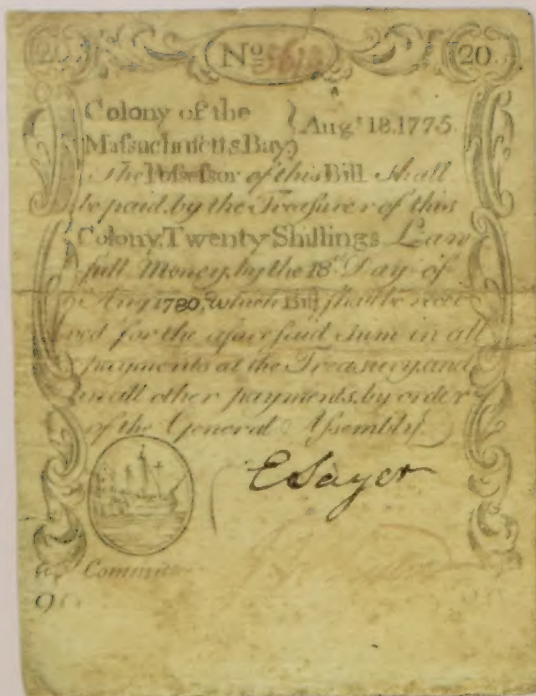 20 No 20
Colony of the
Massachusetts Bay } Augst 18.1775.
The Possessor of this Bill shall
be paid, by the Treasurer of this
Colony, Twenty Shillings Law
full Money, by the 18th Day of
Aug 1780, which Bill shall be recei
ved for the aforesaid Sum in all
payments at the Treasury, and
in all other payments, by order
of the General Assembly
E Sayer
Committee